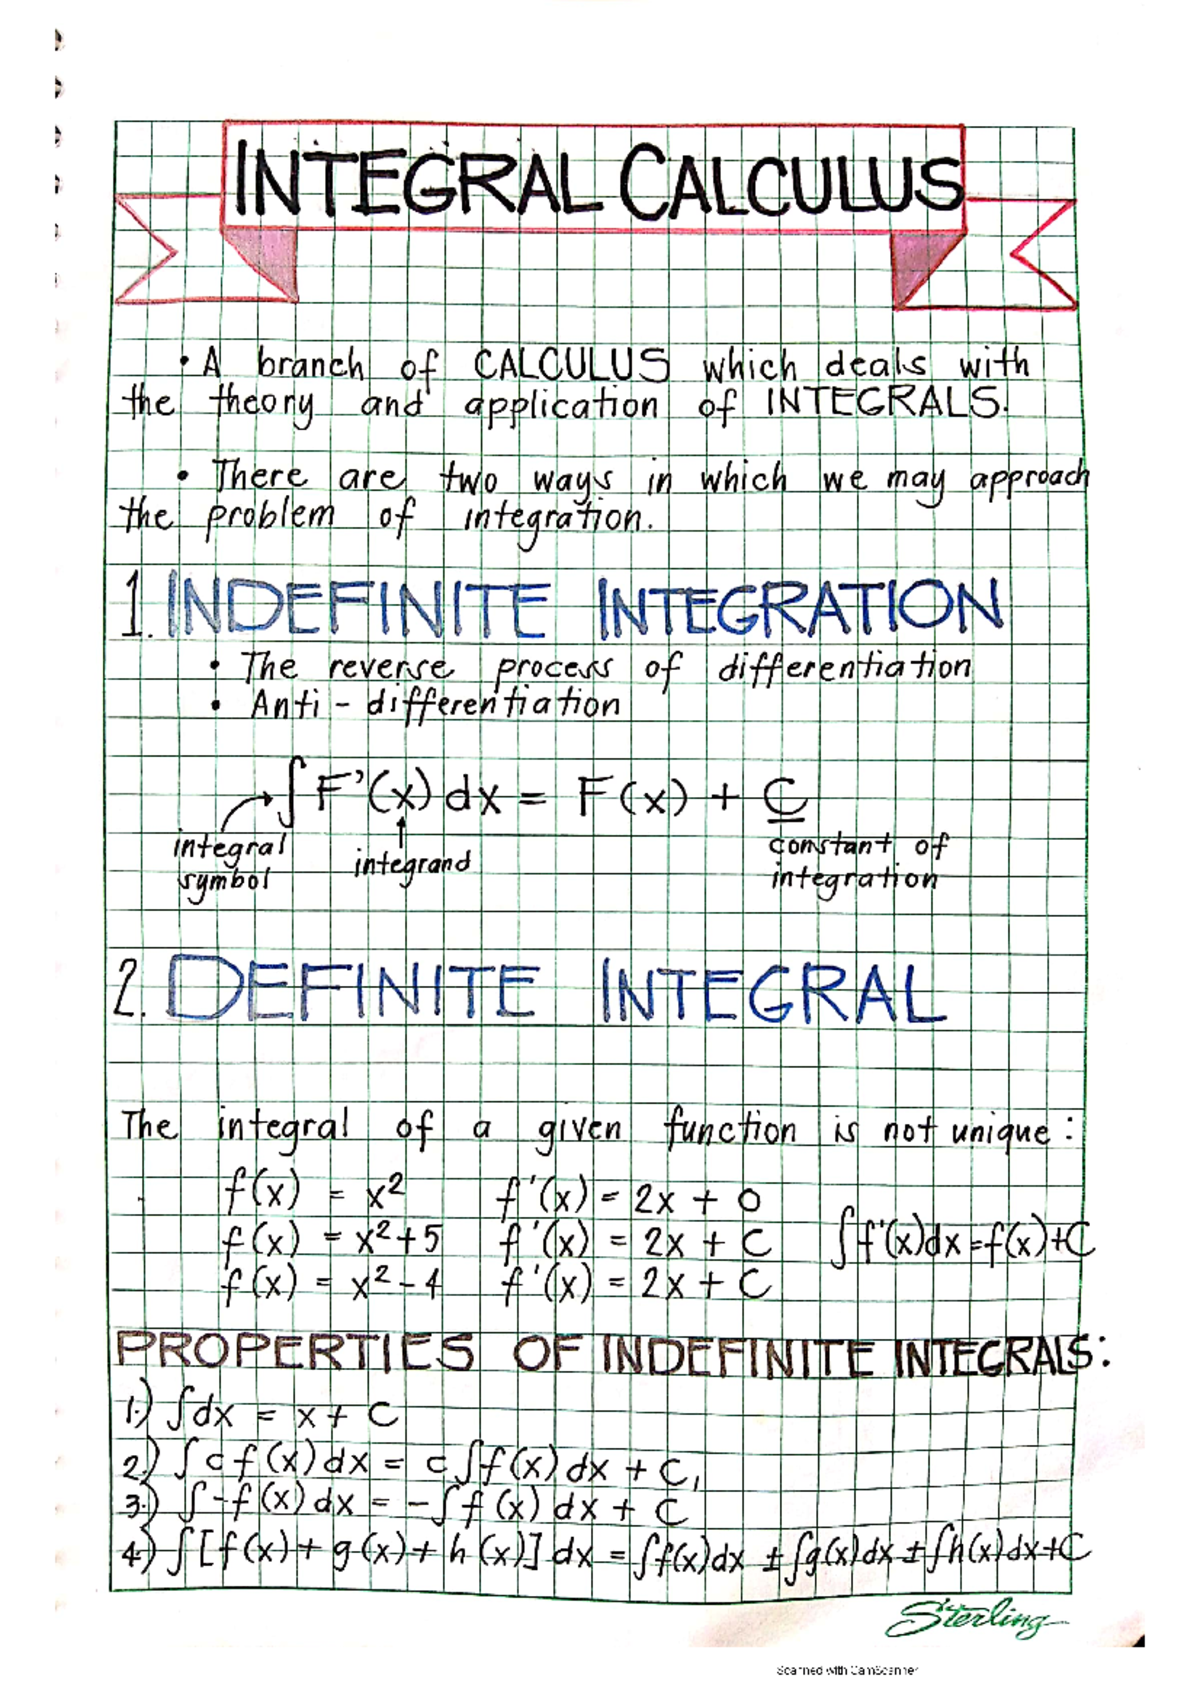 INTEGRAL CALCULUS
• A branch of CALCULUS which deals with
the theory and application of INTEGRALS.
• There are two ways in which we may approach
the problem of integration.
1. INDEFINITE INTEGRATION
• The reverse process of differentiation
• Anti - differentiation
∫ F'(x) dx = F(x) + C
integral symbol
integrand
constant of integration
2. DEFINITE INTEGRAL
The integral of a given function is not unique:
f(x) = x² f'(x) = 2x + 0
f(x) = x²+5 f'(x) = 2x + C ∫f'(x)dx=f(x)+C
f(x) = x²-4 f'(x) = 2x + C
PROPERTIES OF INDEFINITE INTEGRALS:
1.) ∫dx = x + C
2.) ∫c f(x) dx = c∫f(x) dx + C,
3.) ∫-f(x) dx = -∫f(x) dx + C
4.) ∫[f(x)+ g(x)+ h(x)] dx = ∫f(x)dx ± ∫g(x)dx ± ∫h(x)dx+C
Sterling
Scanned with CamScanner